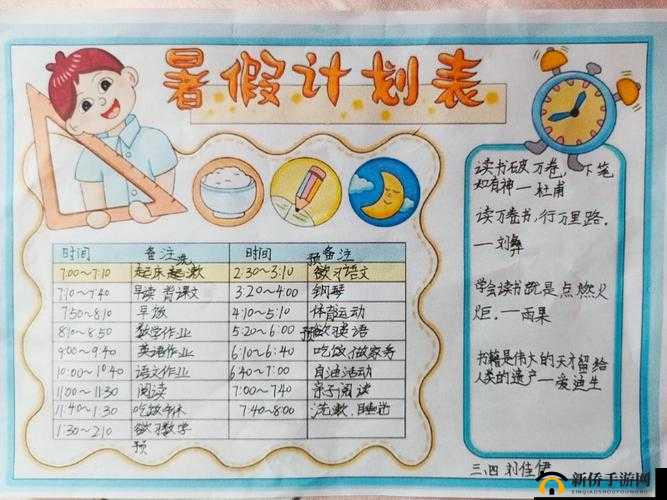 暑假计划表
时间 备注 时间 备注
7:00~7:10 起床 洗漱 2:30~3:10 预习语文
7:10~7:40 早读 背课文 3:20~4:00 钢琴
7:50~8:10 早饭 4:10~5:10 体育运动
8:10~8:50 数学作业 5:20~6:00 预习英语
9:00~9:40 英语作业 6:10~6:40 吃饭 做家务
10:00~10:40 语文作业 6:40~7:00 自由活动
11:00~11:30 阅读 7:00~7:40 亲子阅读
11:40~1:30 吃饭午休 7:40~8:00 洗漱、睡觉
1:30~2:10 预习数学
读书破万卷，下笔
如有神—杜甫
读万卷书，行万里路.
—刘彝
学会读书就是点燃火
炬.—雨果
书籍是伟大的天才留给
人类的遗产—爱迪生
三.四 刘佳伊
新侨手游网
XINQIAOSHOUYOUWANG